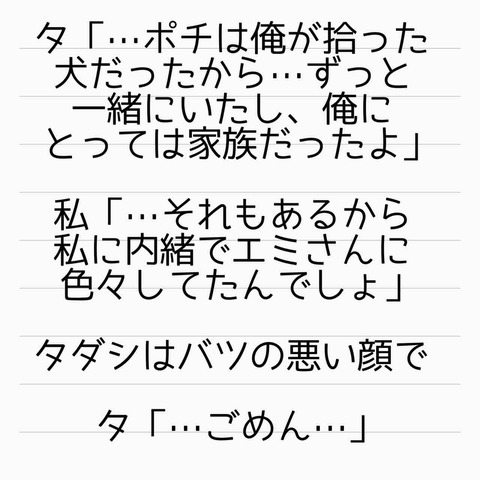 タ「…ポチは俺が拾った
犬だったから…ずっと
一緒にいたし、俺に
とっては家族だったよ」
私「…それもあるから
私に内緒でエミさんに
色々してたんでしょ」
タダシはバツの悪い顔で
タ「…ごめん…」